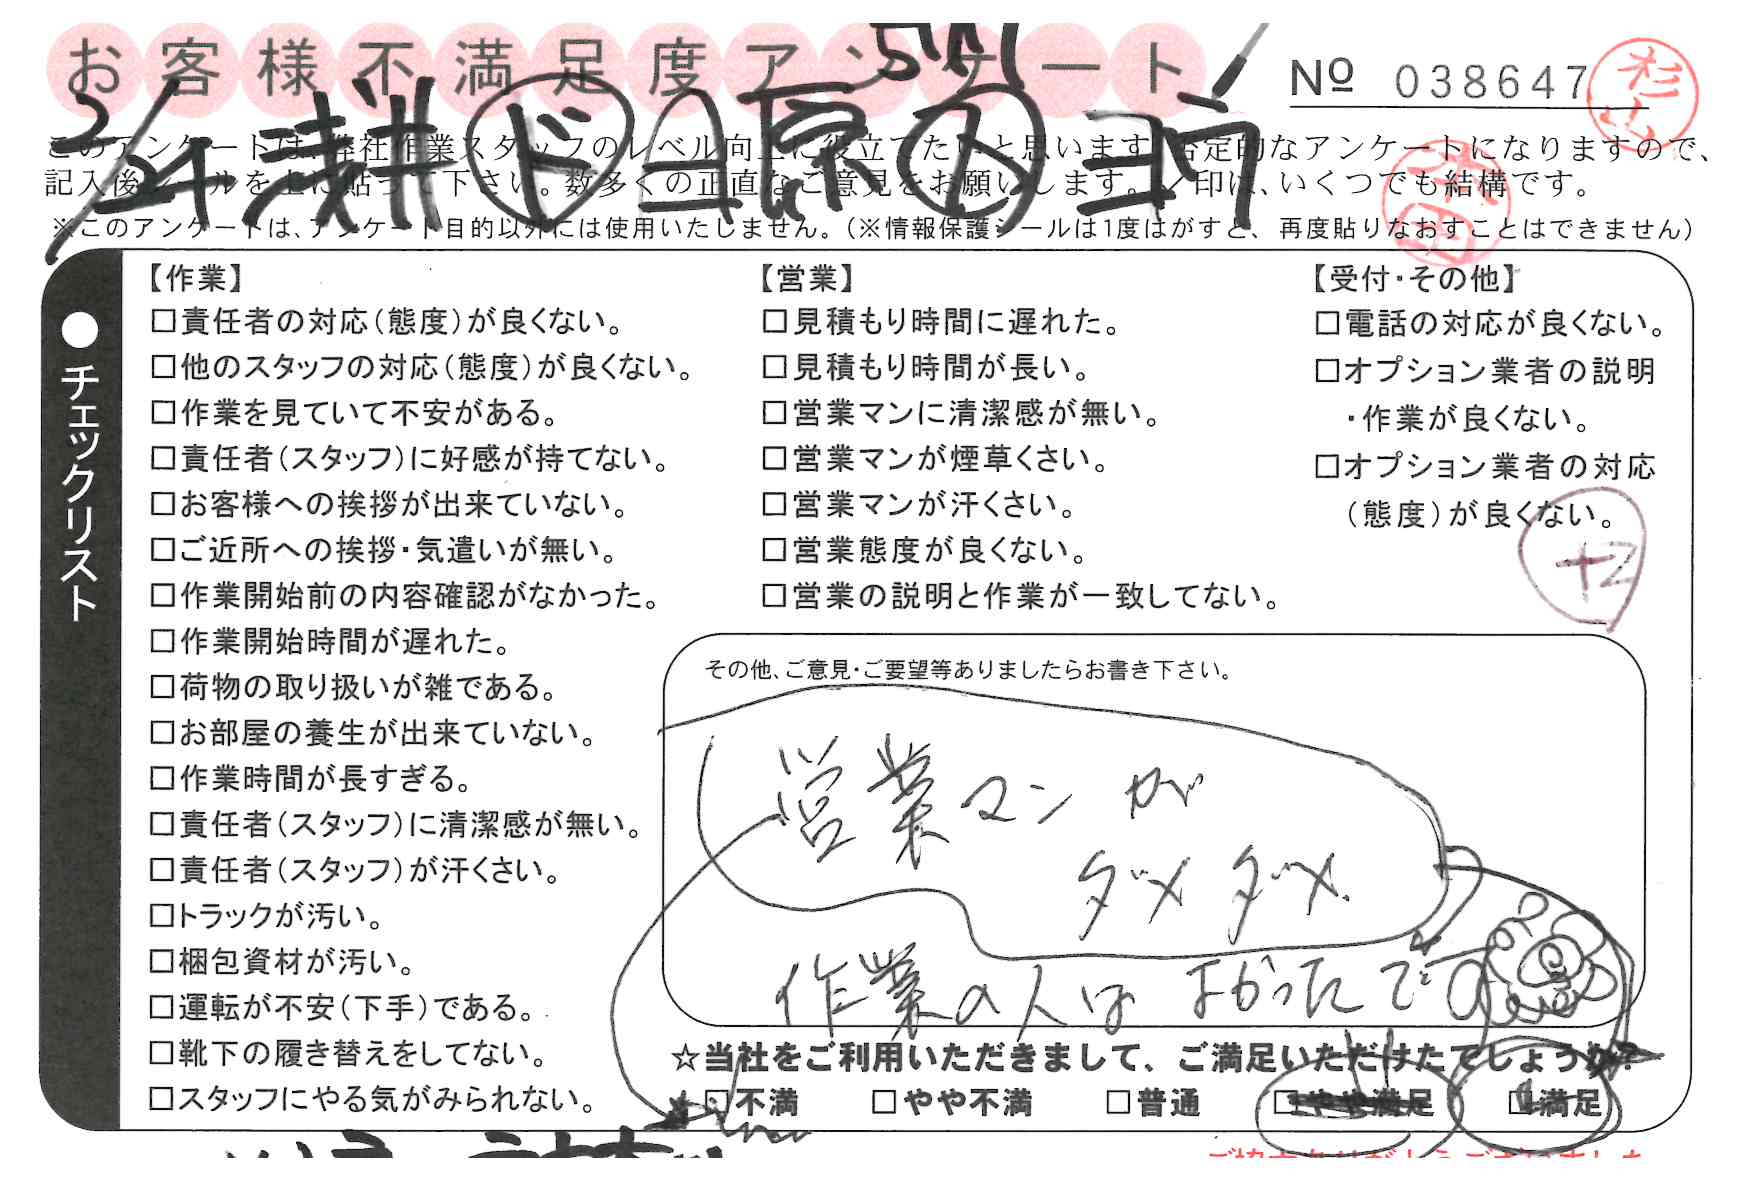 お客様不満足度アンケート
№ 038647
杉山
このアンケートは、弊社作業スタッフのレベル向上に役立てたいと思います。否定的なアンケートになりますので、
記入後シールを上に貼って下さい。数多くの正直なご意見をお願いします。✓印は、いくつでも結構です。
※このアンケートは、アンケート目的以外には使用いたしません。（※情報保護シールは1度はがすと、再度貼りなおすことはできません）
●チェックリスト
【作業】
□責任者の対応（態度）が良くない。
□他のスタッフの対応（態度）が良くない。
□作業を見ていて不安がある。
□責任者（スタッフ）に好感が持てない。
□お客様への挨拶が出来ていない。
□ご近所への挨拶・気遣いが無い。
□作業開始前の内容確認がなかった。
□作業開始時間が遅れた。
□荷物の取り扱いが雑である。
□お部屋の養生が出来ていない。
□作業時間が長すぎる。
□責任者（スタッフ）に清潔感が無い。
□責任者（スタッフ）が汗くさい。
□トラックが汚い。
□梱包資材が汚い。
□運転が不安（下手）である。
□靴下の履き替えをしてない。
□スタッフにやる気がみられない。
【営業】
□見積もり時間に遅れた。
□見積もり時間が長い。
□営業マンに清潔感が無い。
□営業マンが煙草くさい。
□営業マンが汗くさい。
□営業態度が良くない。
□営業の説明と作業が一致してない。
【受付・その他】
□電話の対応が良くない。
□オプション業者の説明
・作業が良くない。
□オプション業者の対応
（態度）が良くない。
その他、ご意見・ご要望等ありましたらお書き下さい。
営業マンが
ダメダメ
作業の人はよかったでの
☆当社をご利用いただきまして、ご満足いただけたでしょうか？
□不満 □やや不満 □普通 □やや満足 □満足